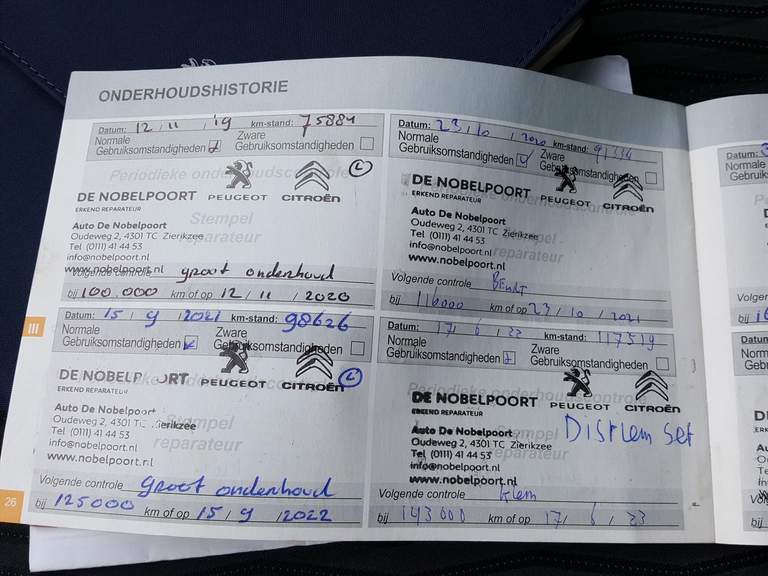 ONDERHOUDSHISTORIE
Datum: 12 / 11 / 19 km-stand: 75884
Normale Gebruiksomstandigheden
Zware Gebruiksomstandigheden
Periodieke onderhoudscontrole
L
DE NOBELPOORT
ERKEND REPARATEUR
PEUGEOT
CITROËN
Stempel
reparateur
Auto De Nobelpoort
Oudeweg 2, 4301 TC Zierikzee
Tel (0111) 41 44 53
info@nobelpoort.nl
www.nobelpoort.nl
Volgende controle groot onderhoud
bij 100.000 km of op 12 / 11 / 2020
Datum: 23 / 10 / 2020 km-stand: 91334
Normale Gebruiksomstandigheden
Zware Gebruiksomstandigheden
DE NOBELPOORT
ERKEND REPARATEUR
PEUGEOT
CITROËN
Periodieke onderhoudscontrole
Stempel
reparateur
Auto De Nobelpoort
Oudeweg 2, 4301 TC Zierikzee
Tel (0111) 41 44 53
info@nobelpoort.nl
www.nobelpoort.nl
Volgende controle
bij 116000 km of op 23 / 10 / 2021
III
Datum: 15 / 9 / 2021 km-stand: 98626
Normale Gebruiksomstandigheden
Zware Gebruiksomstandigheden
DE NOBELPOORT
ERKEND REPARATEUR
PEUGEOT
CITROËN
L
Stempel
reparateur
Auto De Nobelpoort
Oudeweg 2, 4301 TC Zierikzee
Tel (0111) 41 44 53
info@nobelpoort.nl
www.nobelpoort.nl
Volgende controle groot onderhoud
bij 125000 km of op 15 / 9 / 2022
Datum: 17 / 6 / 22 km-stand: 117519
Normale Gebruiksomstandigheden
Zware Gebruiksomstandigheden
Periodieke onderhoudscontrole
DE NOBELPOORT
ERKEND REPARATEUR
PEUGEOT
CITROËN
Stempel
reparateur
Auto De Nobelpoort
Oudeweg 2, 4301 TC Zierikzee
Tel (0111) 41 44 53
info@nobelpoort.nl
www.nobelpoort.nl
set
Volgende controle klein
bij 143000 km of op 17 / 6 / 23
26
Datum:
Normale
bij
Datum:
Normale